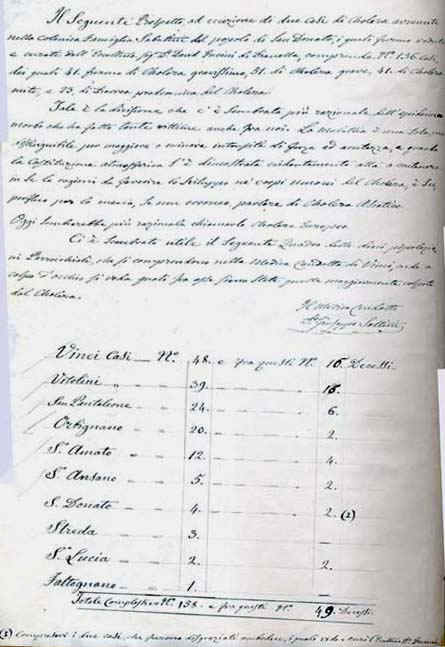 Il Seguente Prospetto, ad eccezione di due Casi di Cholera avvenuti
nella Colonica Famiglia del popolo di San Donato, i quali furono veduti
e curati dall' Eccell. Sig. D. Pucini di comprende N.° 136 Casi,
dei quali 41. furono di Cholera gravissimo, 31. di Cholera grave, 41. di Cholera
mite, e 23. di Diarrea prodroma del Cholera.
Tale è la divisione che c'è Sembrata più razionale dell' epidemico
morbo che ha fatto tante vittime anche fra noi. La malattia è una Sola, e
distinguibile per maggiore o minore intensità di forza ed
la Costituzione atmosferica s'è dimostrata evidentemente
in Se le cagioni da favorire lo Sviluppo ne' corpi umani del Cholera, è
per la Scienza, Se non erroneo parlare di Cholera Asiatico.
Oggi Sembrerebbe più razionale chiamarlo Cholera Europeo.
Ci è Sembrato utile il Seguente Quadro delle dieci popolazioni
Parrocchiali, che si comprendono nella Medica Condotta di Vinci, onde a
colpo d'occhio si veda quali fra esse furono State maggiormente colpite
dal Cholera.
Il Medico Condotto
D. Giuseppe
Vinci Casi — N.° 48. e fra questi N.° 16. Decessi.
Vitolini „ „ 39. 15.
San Pantaleone — „ 24. 6.
Orbignano „ 20. 2.
S. Amato — „ 12. 4.
S. Ansano — „ 5. 2.
S. Donato — „ 4. 2. (1)
Streda „ 3. —
S. Lucia „ 2. 2.
Faltognano — „ 1. —
Totale Complessivo N.° 158. e fra questi N.° 49 Decessi.
(1) Compresovi i due casi, che furono disgraziati ambedue, i quali vide e curò